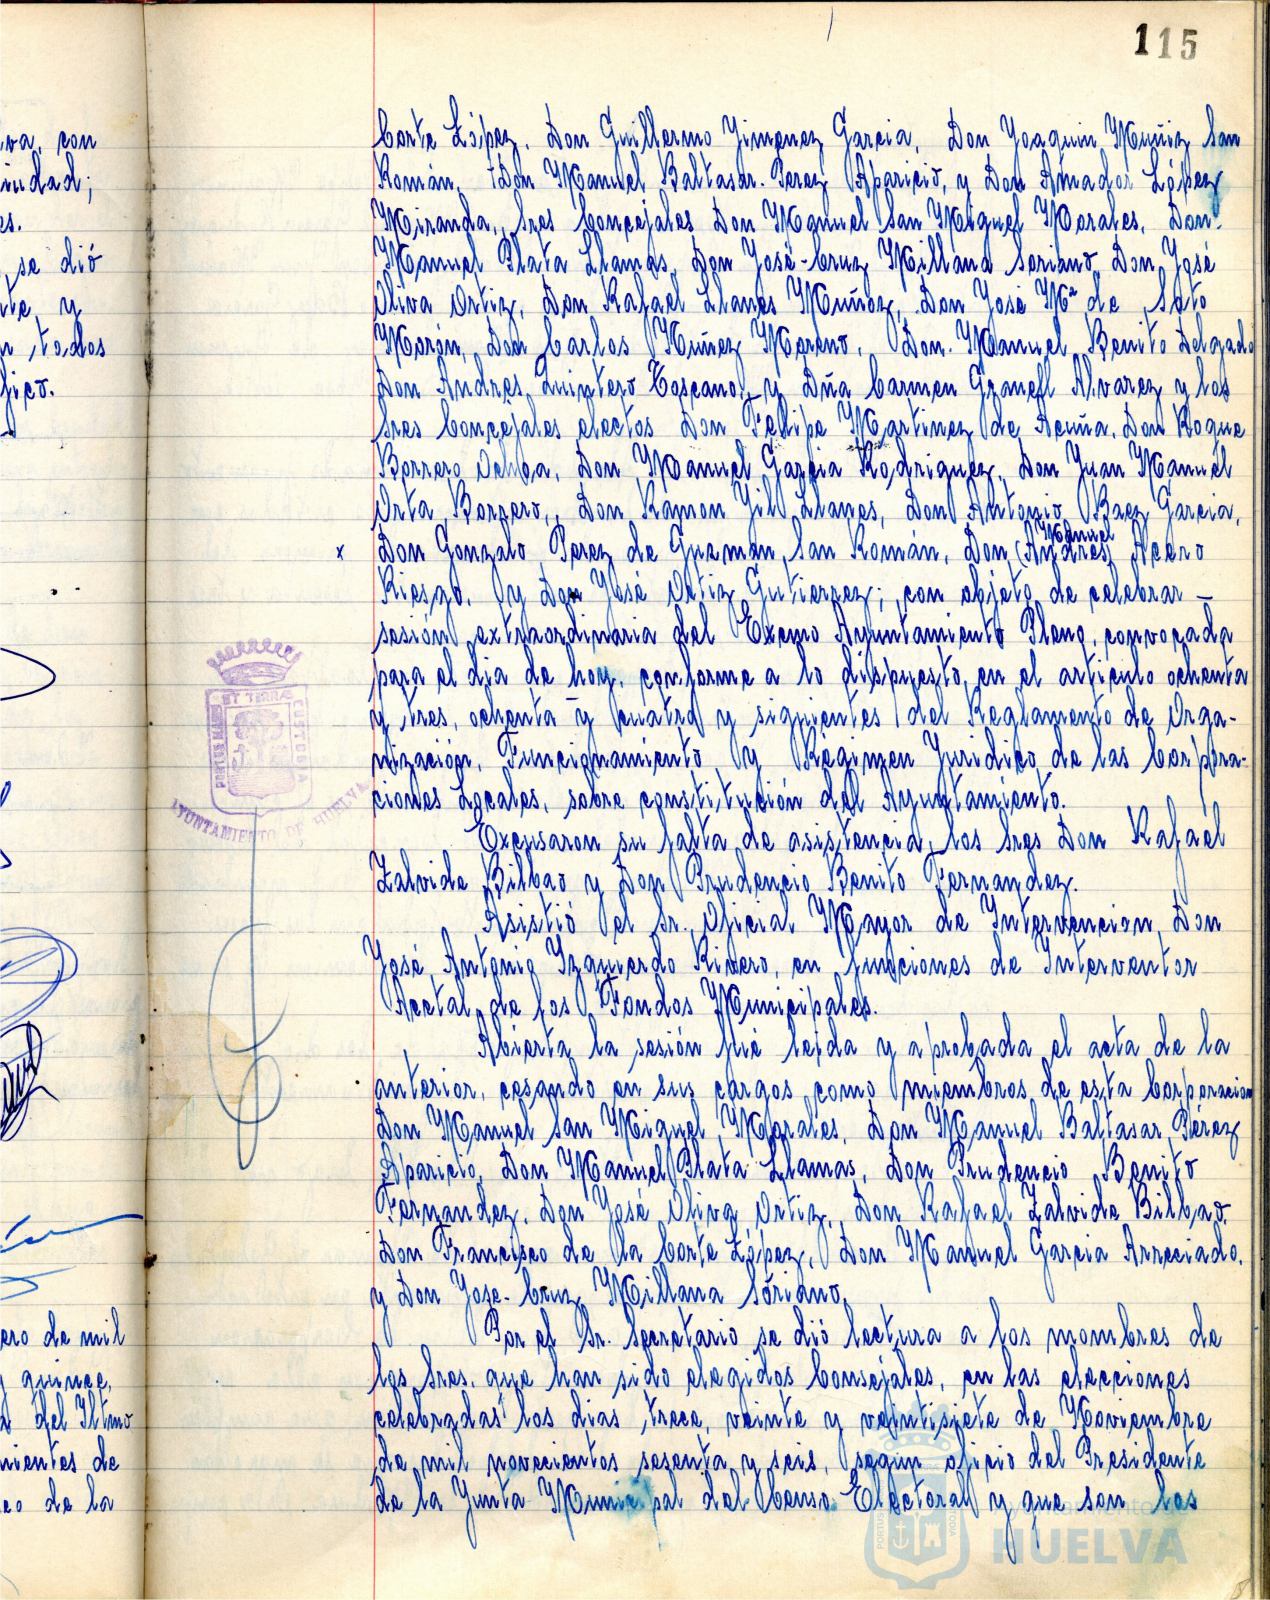 115
va, con
iudad;
es.
se dió
te, y
n, todos
fico.
ero de mil
y quince,
a del Iltmo
mientos de
co de la
Corte López, Don Guillermo Jimenez Garcia, Don Joaquin Muñiz San
Román, Don Manuel Baltasar Perez Aparicio, y Don Amador López
Miranda, Sres Concejales Don Manuel San Miguel Morales, Don.
Manuel Plata Llamas, Don José-Cruz Millana Soriano, Don José
Oliva Ortiz, Don Rafael Llanes Muñoz, Don José Mª de Soto
Morón, Don Carlos Nuñez Moreno, Don Manuel Benito Delgado
Don Andres Quintero Toscano, y Dña Carmen Alvarez y los
Sres Concejales electos Don Felipe Martinez de Acuña, Don Roque
Borrero Ochoa, Don Manuel Garcia Rodriguez, Don Juan Manuel
Orta Borrero, Don Ramon Gil Llanes, Don Antonio Baez Garcia,
x Don Gonzalo Perez de Guzman San Román, Don (Andres) Manuel Acero
Riesgo, y Don José Ortiz Gutierrez; con objeto de celebrar –
sesión extraordinaria del Excmo Ayuntamiento Pleno, convocada
para el dia de hoy, conforme a lo dispuesto en el articulo ochenta
y tres, ochenta y cuatro y siguientes del Reglamento de Orga-
nización, Funcionamiento y Régimen Juridico de las Corpora-
ciones Locales, sobre constitución del Ayuntamiento.
Excusaron su falta de asistencia, los Sres Don Rafael
Zalvide Bilbao y Don Prudencio Benito Fernandez.
Asistió el Sr. Oficial Mayor de Intervencion, Don
José Antonio Izquierdo Rivero, en funciones de Interventor
Acctal de los Fondos Municipales.
Abierta la sesión fué leida y aprobada el acta de la
anterior, cesando en sus cargos como miembros de esta Corporación
Don Manuel San Miguel Morales, Don Manuel Baltasar Pérez
Aparicio, Don Manuel Plata Llamas, Don Prudencio Benito
Fernandez, Don José Oliva Ortiz, Don Rafael Zalvide Bilbao,
Don Francisco de la Corte López, Don Manuel Garcia Arreciado,
y Don Jose-Cruz Millana Soriano.
Por el Sr. Secretario se dió lectura a los nombres de
los Sres. que han sido elegidos Consejales, en las elecciones
celebradas los dias trece, veinte y veintisiete de Noviembre
de mil novecientos sesenta y seis, segun oficio del Presidente
de la Junta Municipal del Censo Electoral y que son los
PORTUS MARIS ET TERRAE CUSTODIA
AYUNTAMIENTO DE HUELVA
Ayuntamiento de
HUELVA